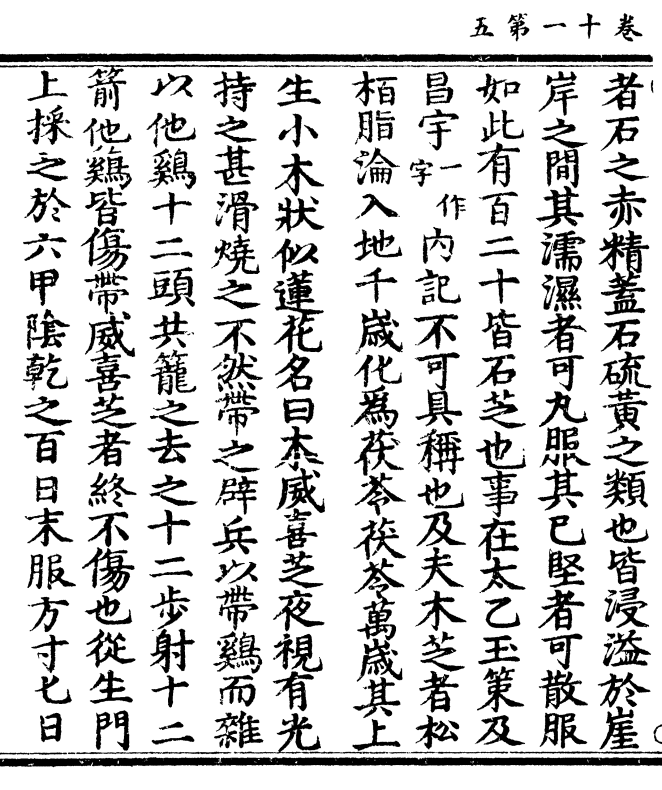 卷十一第五
者石之赤精蓋石硫黃之類也皆浸溢於崖
岸之間其濡濕者可丸服其已堅者可散服
如此有百二十皆石芝也事在太乙玉策及
昌宇一作字內記不可具稱也及夫木芝者松
栢脂淪入地千歲化爲茯苓茯苓萬歲其上
生小木狀似蓮花名曰木威喜芝夜視有光
持之甚滑燒之不然帶之辟兵以帶鷄而雜
以他鷄十二頭共籠之去之十二步射十二
箭他鷄皆傷帶威喜芝者終不傷也從生門
上採之於六甲陰乾之百日末服方寸匕日